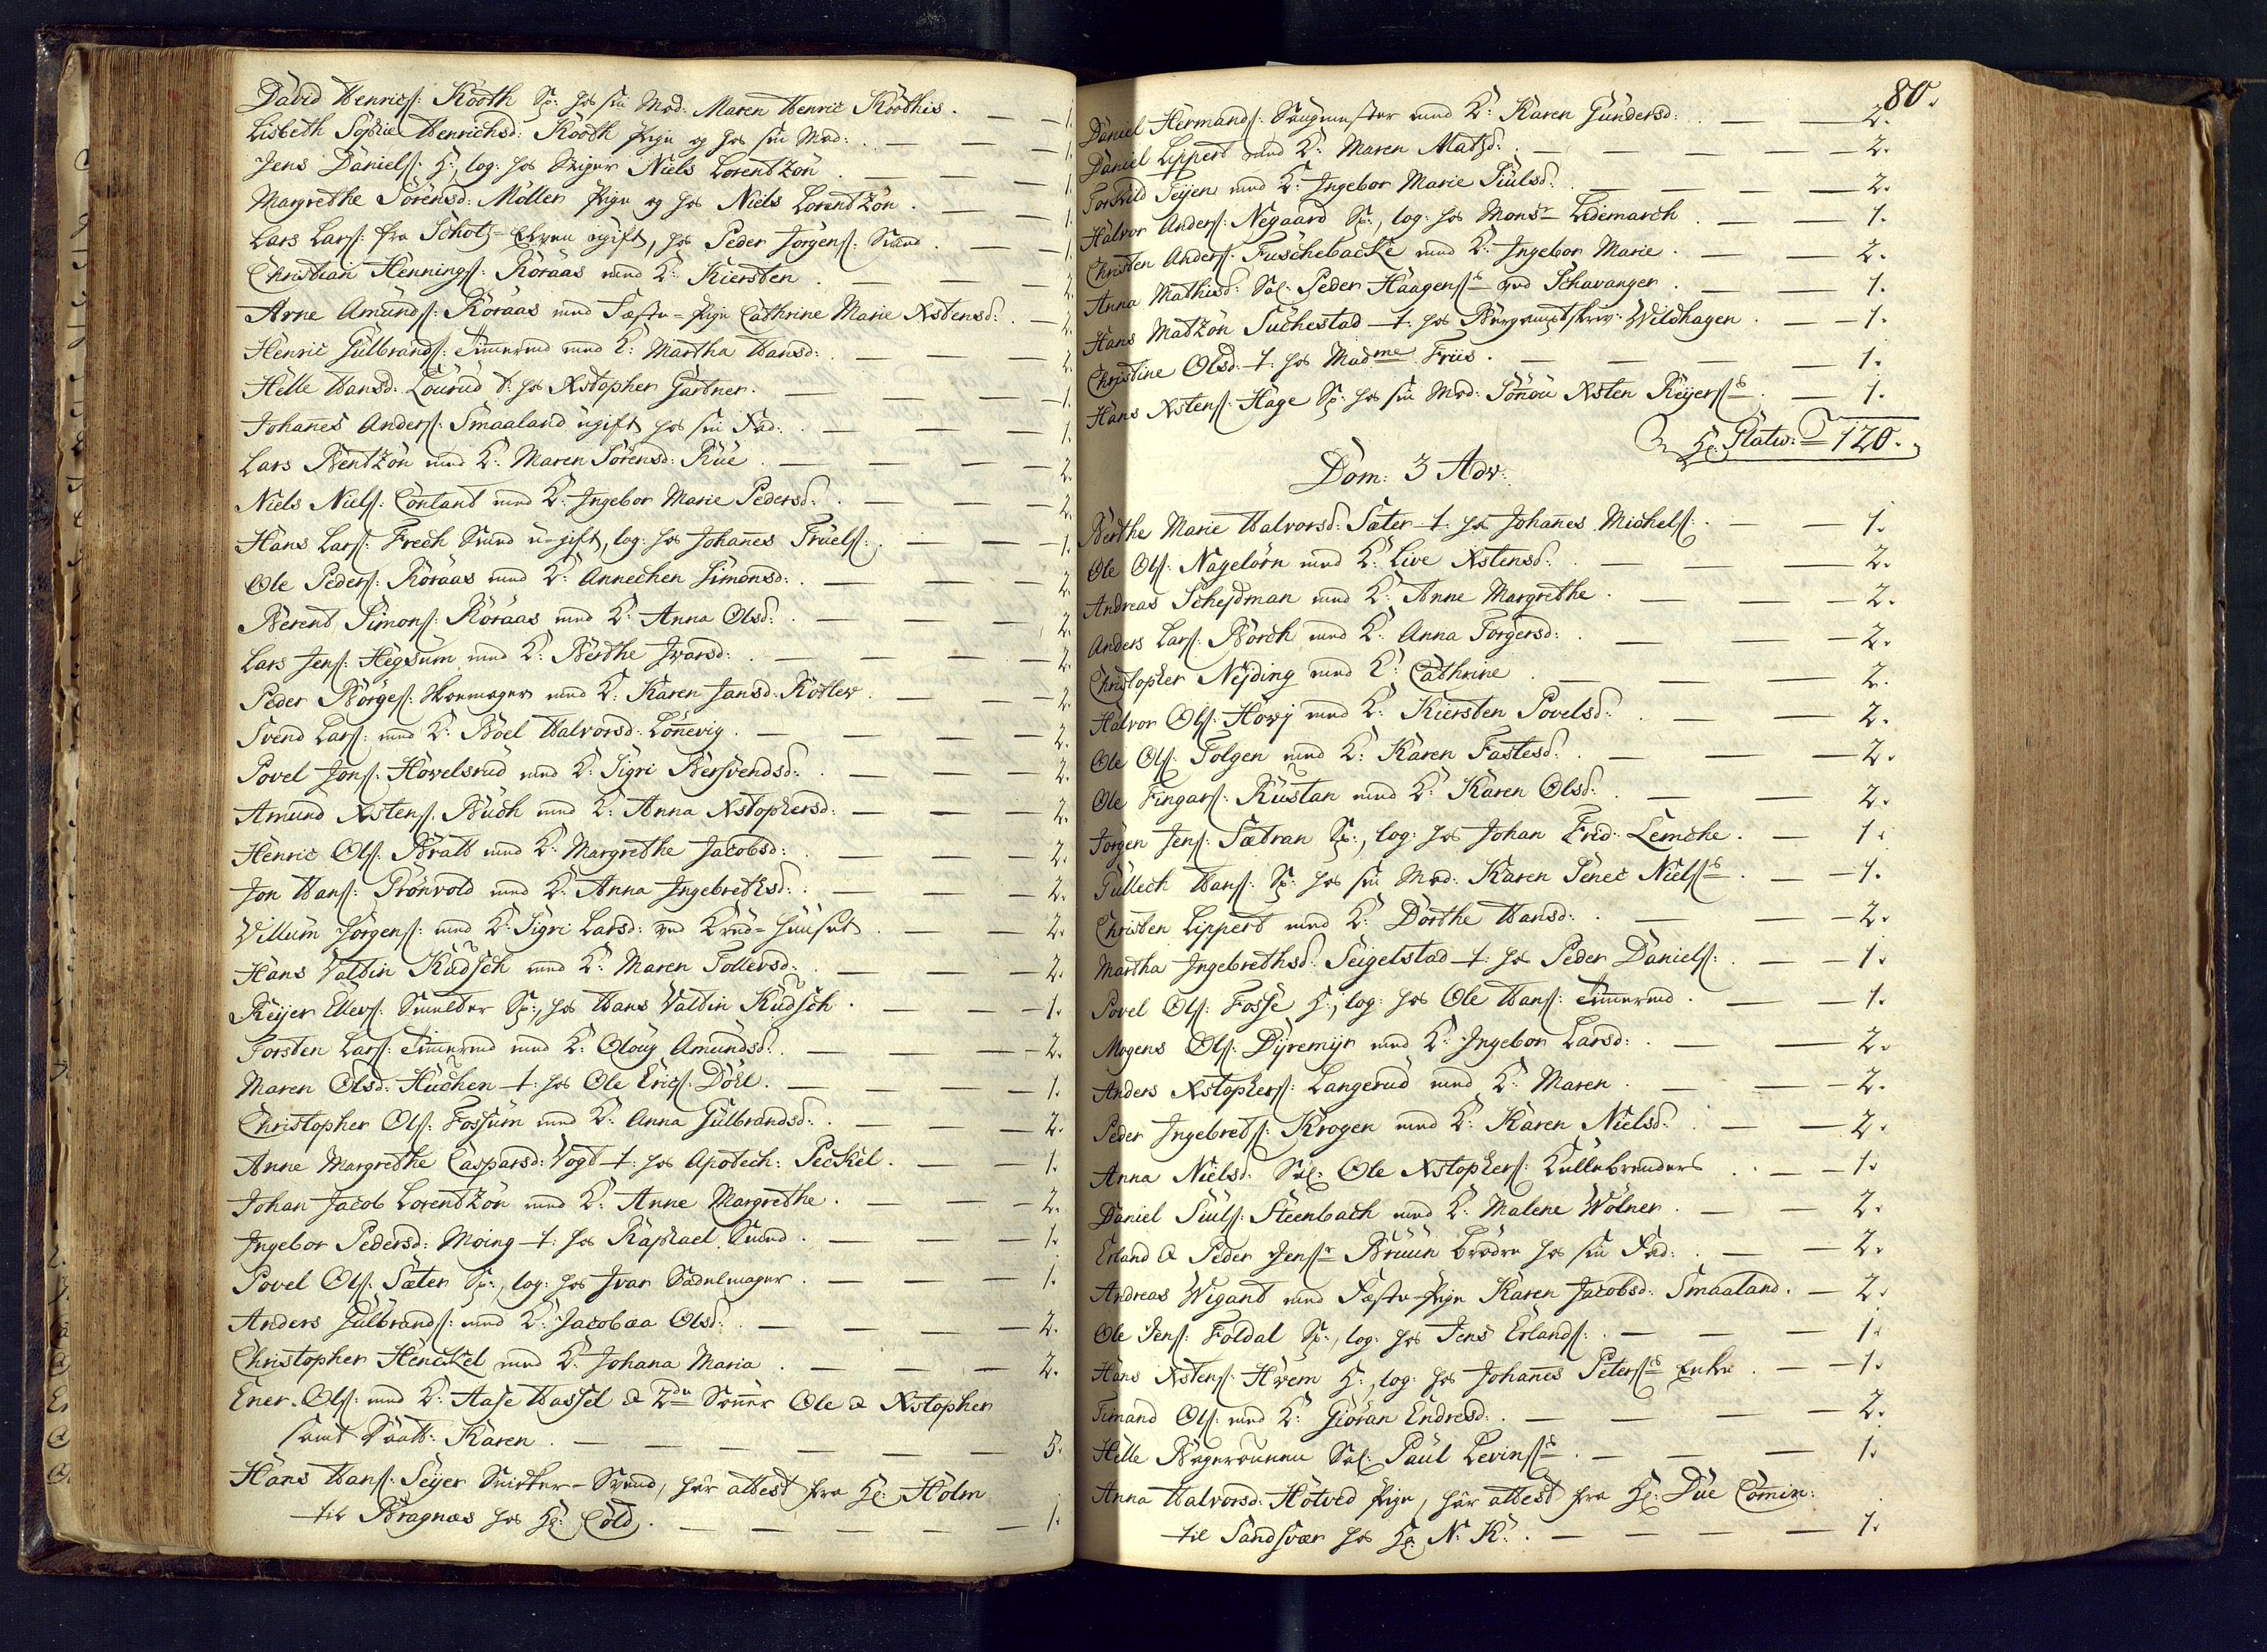 David Henrics: Kooth Sp: hos sin Mod: Maren Henric Koothis. — 1.
Lisbeth Sophie Henrichsd: Kooth Pige og hos sin Mod: — 1.
Jens Daniels: H:, log: hos Stiger Niels Lorentzön — 1.
Margrethe Sörensd: Möller Pige og hos Niels Lorentzön. — 1.
Lars Lars: fra Schotz-Elven ugift, hos Peder Jörgens: Smed. — 1.
Christian Hennings: Röraas med K: Kiersten. — 2.
Arne Amunds: Röraas med Fæste-Pige Cathrine Marie Xstensd: — 2.
Henric Gulbrands: Timermd med K: Martha Hansd: — 2.
Helle Hansd: Lourud t: hos Xstopher Gartner. — 1.
Johanes Anders: Smaaland ugift hos sin Fad: — 1.
Lars Bentzön med K: Maren Sörensd: Rüe. — 2.
Niels Niels: Contant med K: Ingebor Marie Pedersd: — 2.
Hans Lars: Frech Svend u-gift, log: hos Johanes Truels: — 1.
Ole Peders: Röraas med K: Annechen Simonsd: — 2.
Berent Simons: Röraas med K: Anna Olsd: — 2.
Lars Jens: Hegsum med K: Berthe Ivarsd: — 2.
Peder Börges: Skoemager med K: Karen Jansd: Kotlev. — 2.
Svend Lars: med K: Boel Halvorsd: Lönevig. — 2.
Povel Jons: Hovelsrud med K: Sigri Bersvendsd: — 2.
Amund Xstens: Buch med K: Anna Xstophersd: — 2.
Henric Ols: Bratt med K: Margrethe Jacobsd: — 2.
Jon Hans: Prönvold med K: Anna Ingebrethsd: — 2.
Villum Jörgens: med K: Sigri Larsd: ved Krud-Huuset. — 2.
Hans Valtin Kudsch med K: Maren Tollevsd: — 2.
Reijer Ellevs: Smelter Sp:, hos Hans Valtin Kudsch. — 1.
Torsten Lars: Timermd med K: Oloug Amundsd: — 2.
Maren Olsd: Huchen t: hos Ole Erics: Döhl. — 1.
Christopher Ols: Fossum med K: Anna Gulbrandsd: — 2.
Anne Margrethe Caspersd: Vogt t: hos Apotech: Peckel. — 1.
Johan Jacob Lorentzön med K: Anne Margrethe. — 2.
Ingebor Pedersd: Moing t: hos Raphael Smed. — 1.
Povel Ols: Sæter Sp:, log: hos Ivar Sadelmager. — 1.
Anders Gulbrands: med K: Jacobæa Olsd: — 2.
Christopher Henckel med K: Johana Maria. — 2.
Ener Ols: med K: Aase Hassel & 2de Sönner Ole & Xstopher
samt Daatt: Karen. — 5.
Hans Hans: Seijer Snicker-Svend, har attest fra Hr: Holm
til Bragnæs hos Hr: Cold. — 1.
80.
Daniel Hermands: Saugmester med K: Karen Gundersd: — 2.
Daniel Lippert med K: Maren Matsd: — 2.
Torkild Teijen med K: Ingebor Marie Siulsd: — 2.
Halvor Anders: Negaard Sp:, log: hos Monsr Lidemarch — 1.
Christen Anders: Fuschebacke med K: Ingebor Marie. — 2.
Anna Mathisd: Sal: Peder Haagensis ved Schavanger. — 1.
Hans Matzön Suchestad t: hos Bergamptskriv: Wildhagen — 1.
Christine Olsd: t: hos Madme Friis. — 1.
Hans Xstens: Hage Sp: hos sin Mod: Sönou Xsten Reijersis. — 1.
Hr: Platw: 120.
Dom: 3 Adv:
Berthe Marie Halvorsd: Sæter t: hos Johanes Michels: — 1.
Ole Ols: Nagelörn med K: Live Xstensd: — 2.
Andreas Schejdman med K: Anne Margrethe. — 2.
Anders Lars: Borch med K: Anna Torgersd: — 2.
Christopher Nejding med K: Cathrine — 2.
Halvor Ols: Hovj med K: Kiersten Povelsd: — 2.
Ole Ols: Tolgen med K: Karen Fastesd: — 2.
Ole Fingars: Rustan med K: Karen Olsd: — 2.
Jörgen Jens: Sætran Sp:, log: hos Johan Frid: Lemche. — 1.
Gullech Hans: Sp: hos sin Mod: Karen Senec Nielsis. — 1.
Christen Lippert med K: Dorthe Hansd: — 2.
Martha Ingebrethsd: Teigelstad t: hos Peder Daniels: — 1.
Povel Ols: Fosse H:, log: hos Ole Hans: Timermd. — 1.
Mogens Ols: Dÿremÿr med K: Ingebor Larsd: — 2.
Anders Xstophers: Langerud med K: Maren. — 2.
Peder Ingebrets: Krogen med K: Karen Nielsd: — 2.
Anna Nielsd: Sal: Ole Xstophers: Kullebrenders — 1.
Daniel Siuls: Steenbach med K: Malene Wölner. — 2.
Erland & Peder Jensr Bruun brödre hos sin Fad: — 2.
Andreas Wigant med Fæste-Pige Karen Jacobsd: Smaaland. — 2.
Ole Jens: Foldal Sp:, log: hos Jens Erlands: — 1.
Hans Xstens: Hvem H:, log: hos Johanes Petersis Enke. — 1.
Timand Ols: med K: Giöran Endresd: — 2.
Helle Bogerounen Sal: Paul Levinsis. — 1.
Anna Halvorsd: Hotved Pige, har attest fra Hr: Due Comin:
til Sandsvær hos Hr: N: K: — 1.